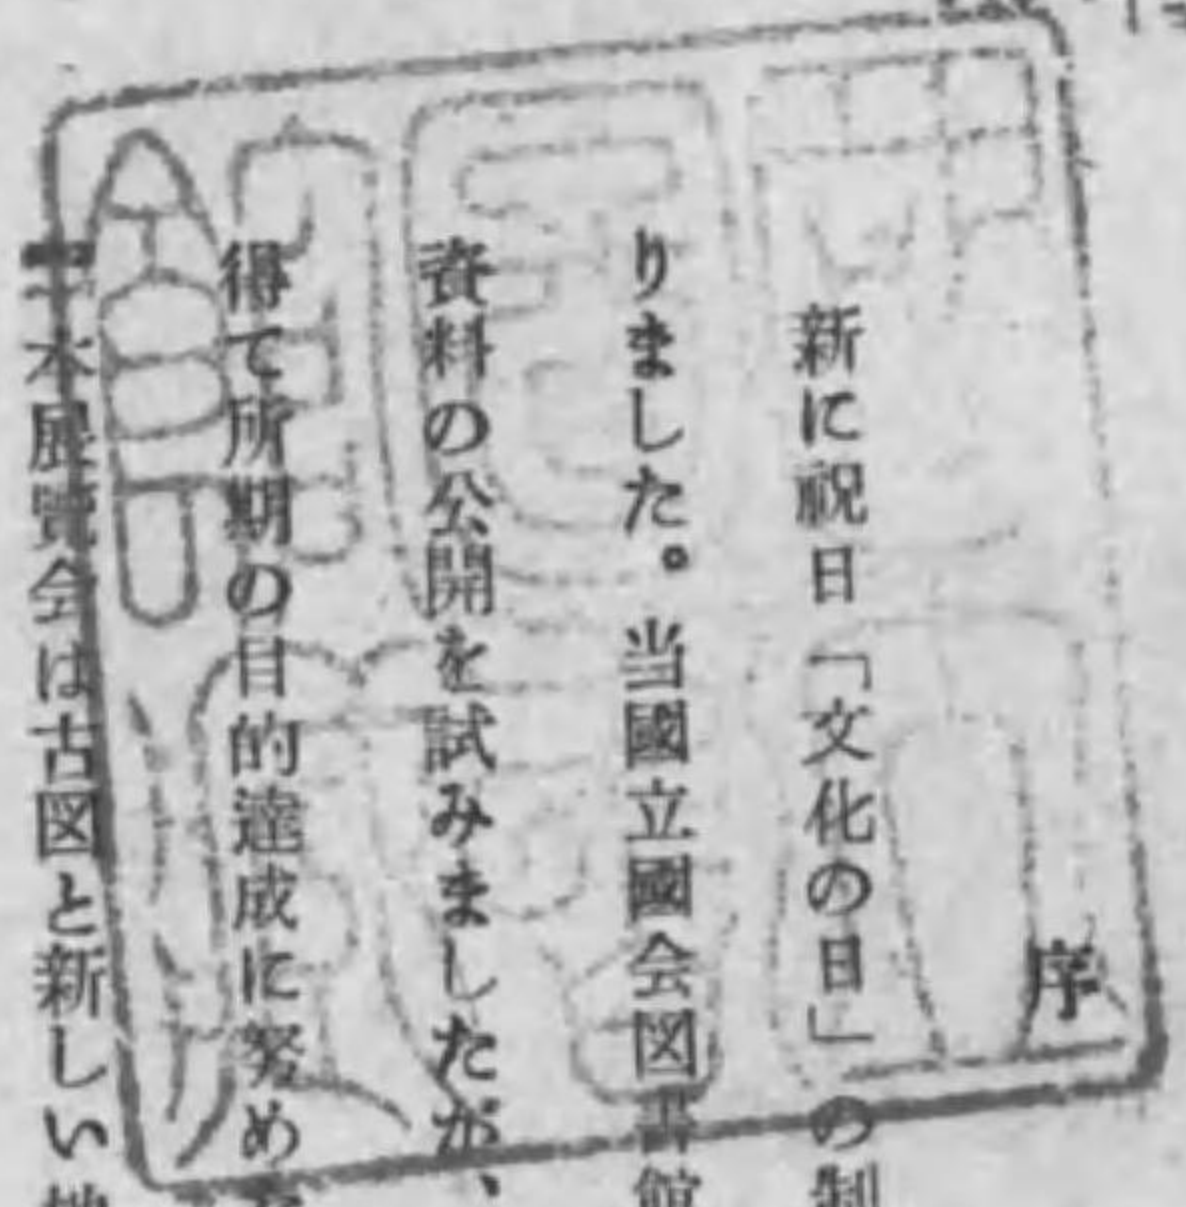 序
新に祝日「文化の日」の制
りました。当國立國会図書館
資料の公開を試みましたが、
得て所期の目的達成に努めた
本展覽会は古図と新しい地